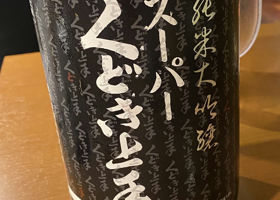 純米大吟醸
スーパー
くどき上手